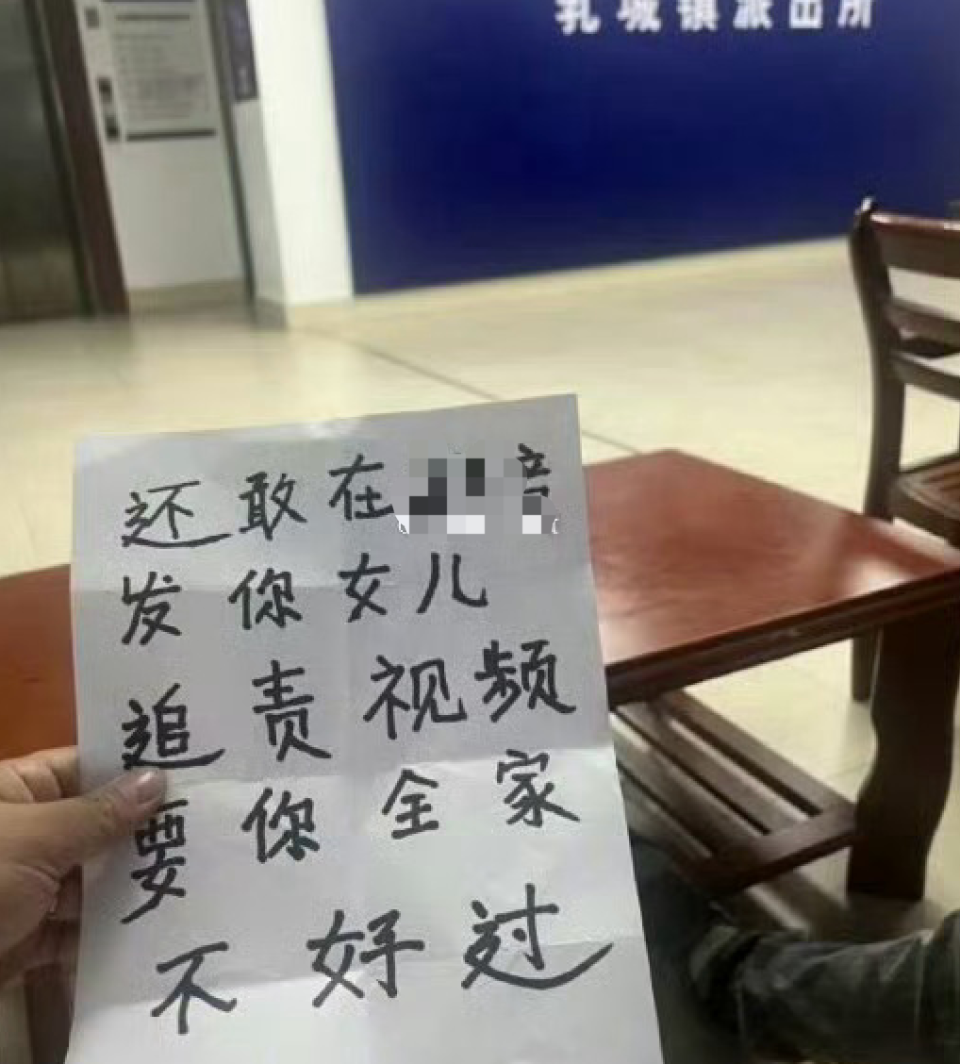 乳城镇派出所
还敢在音
发你女儿
追责视频
要你全家
不好过